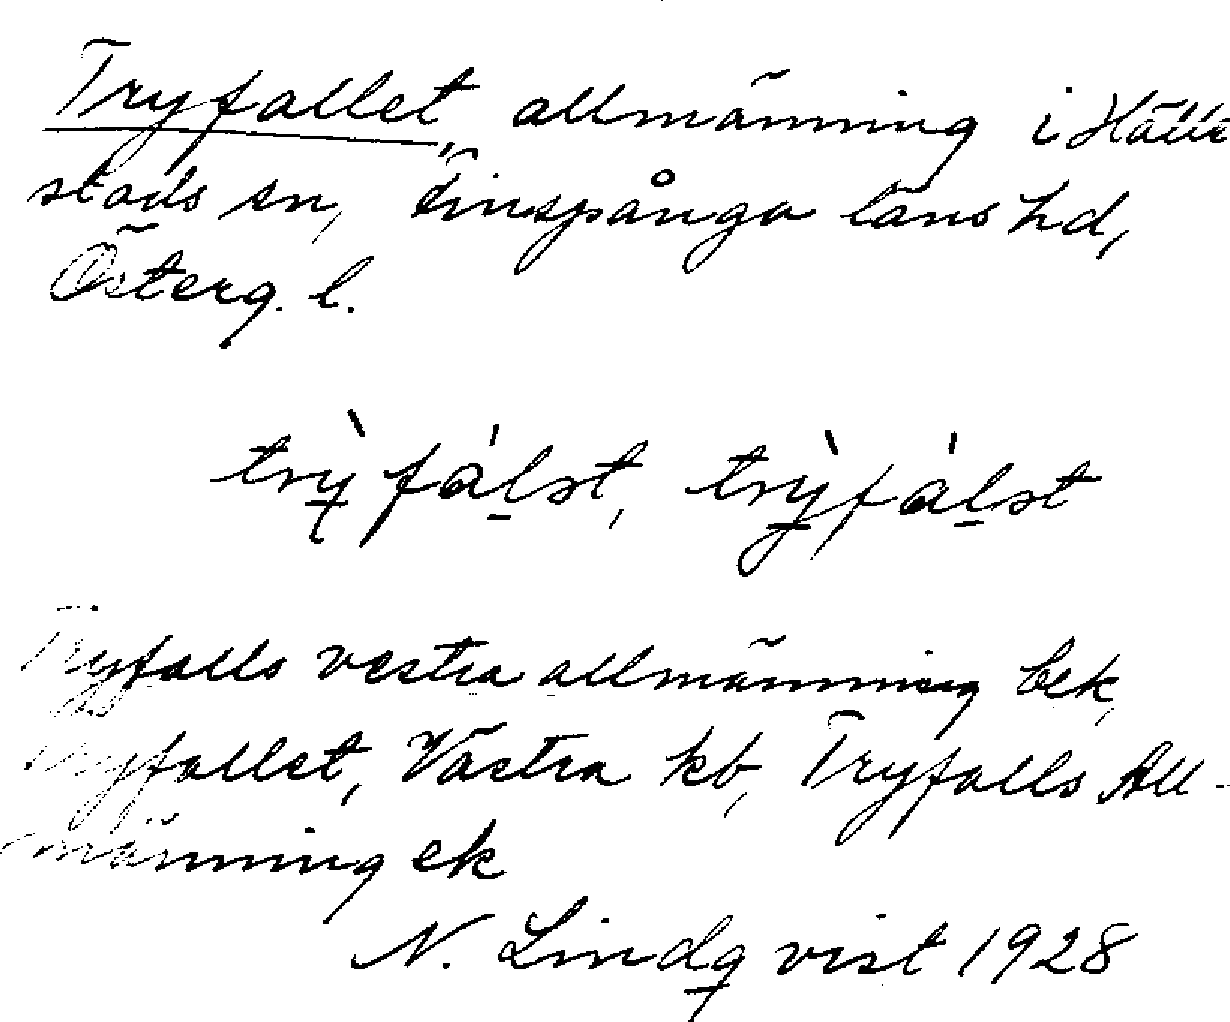 Tryfallet, allmänning i Hälle
stads sn, Finspånga läns hd,
Österg. l.
trỳfá̱lst, trỳfá̱lst
Tryfalls vestra allmänning bek,
Tryfallet, Västra kb, Tryfalls All-
männing ek
N. Lindqvist 1928